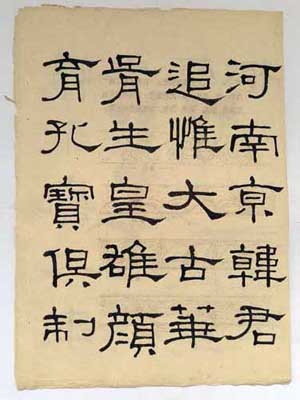 河南京韓君
追惟大古華
胥生皇雄顏
育孔寶俱制